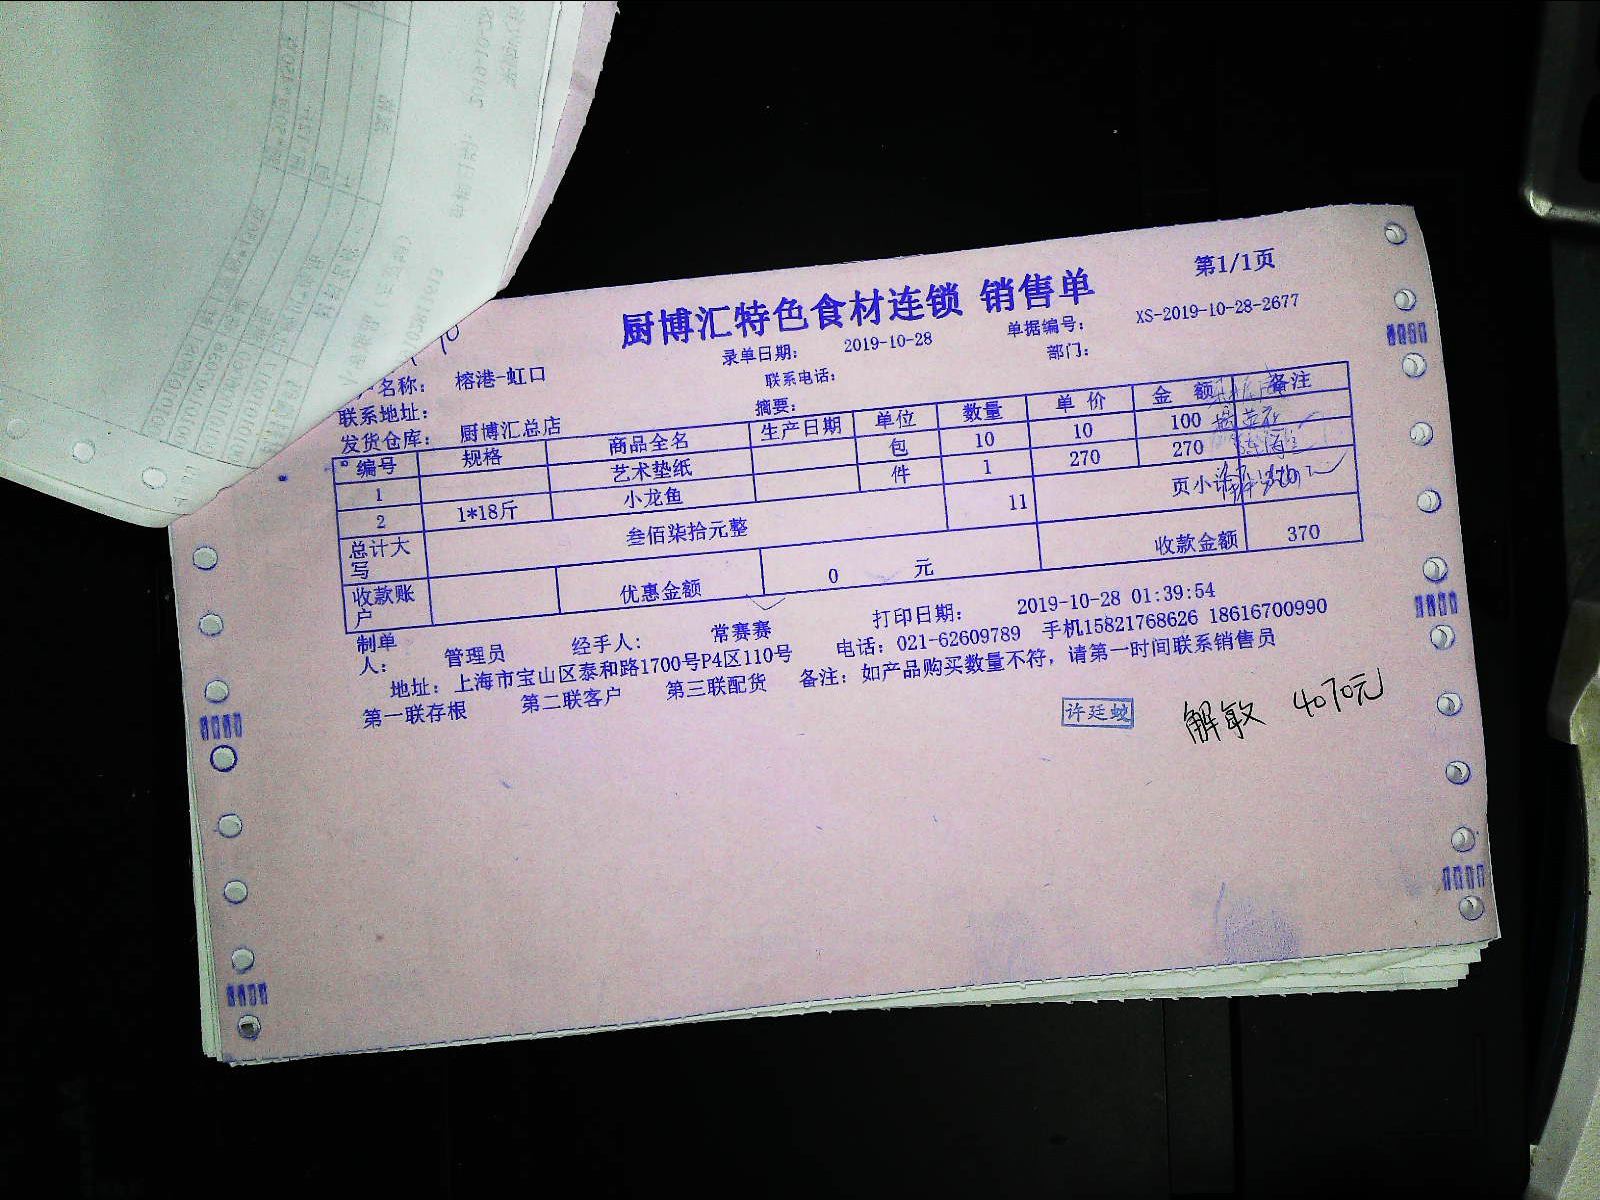 第1/1页
厨博汇特色食材连锁 销售单
录单日期： 2019-10-28 单据编号： XS-2019-10-28-2677
名称： 榕港-虹口 联系电话： 部门：
联系地址： 摘要：
发货仓库： 厨博汇总店
编号 规格 商品全名 生产日期 单位 数量 单价 金额 备注
1 艺术垫纸 包 10 10 100
2 1*18斤 小龙鱼 件 1 270 270
总计大写 叁佰柒拾元整 11 页小计 370
收款账户 优惠金额 0 元 收款金额 370
制单人： 管理员 经手人： 常赛赛 打印日期： 2019-10-28 01:39:54
地址：上海市宝山区泰和路1700号P4区110号 电话：021-62609789 手机15821768626 18616700990
第一联存根 第二联客户 第三联配货 备注：如产品购买数量不符，请第一时间联系销售员
许廷蛟 解敏 4070元